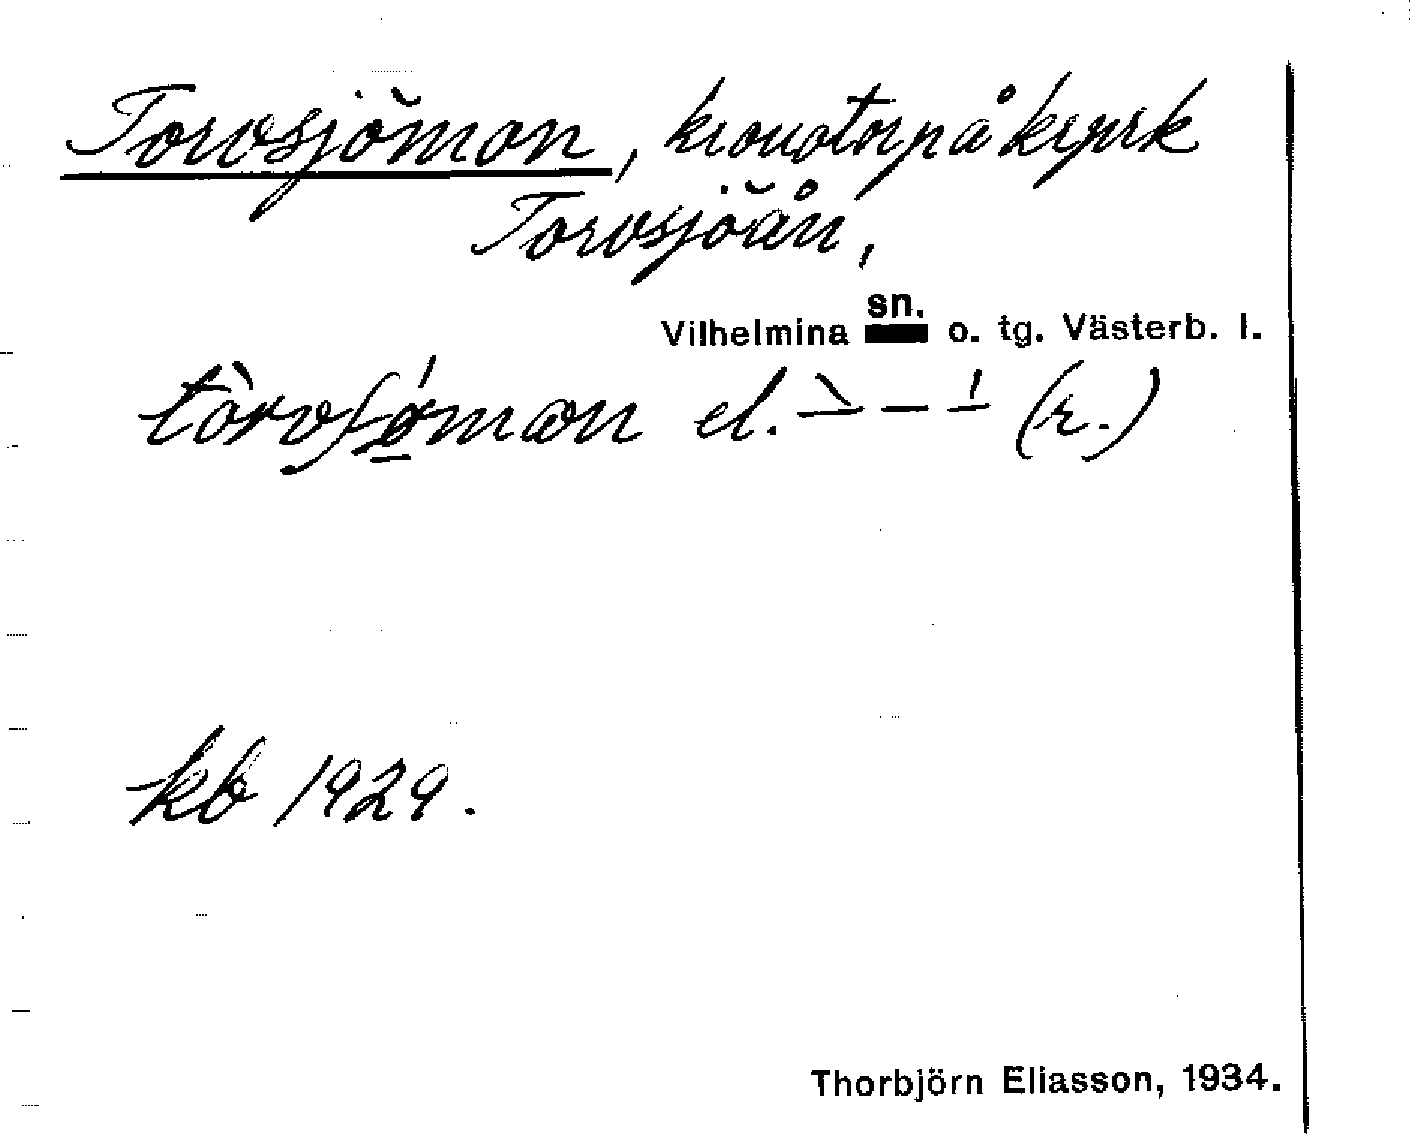 Torvsjömon, kronotorp å krpark
Torvsjöån,
sn.
Vilhelmina o. tg. Västerb. l.
tòrvʃǿ̱mωn el. –̀ – –́ (r.)
kb 1929.
Thorbjörn Eliasson, 1934.